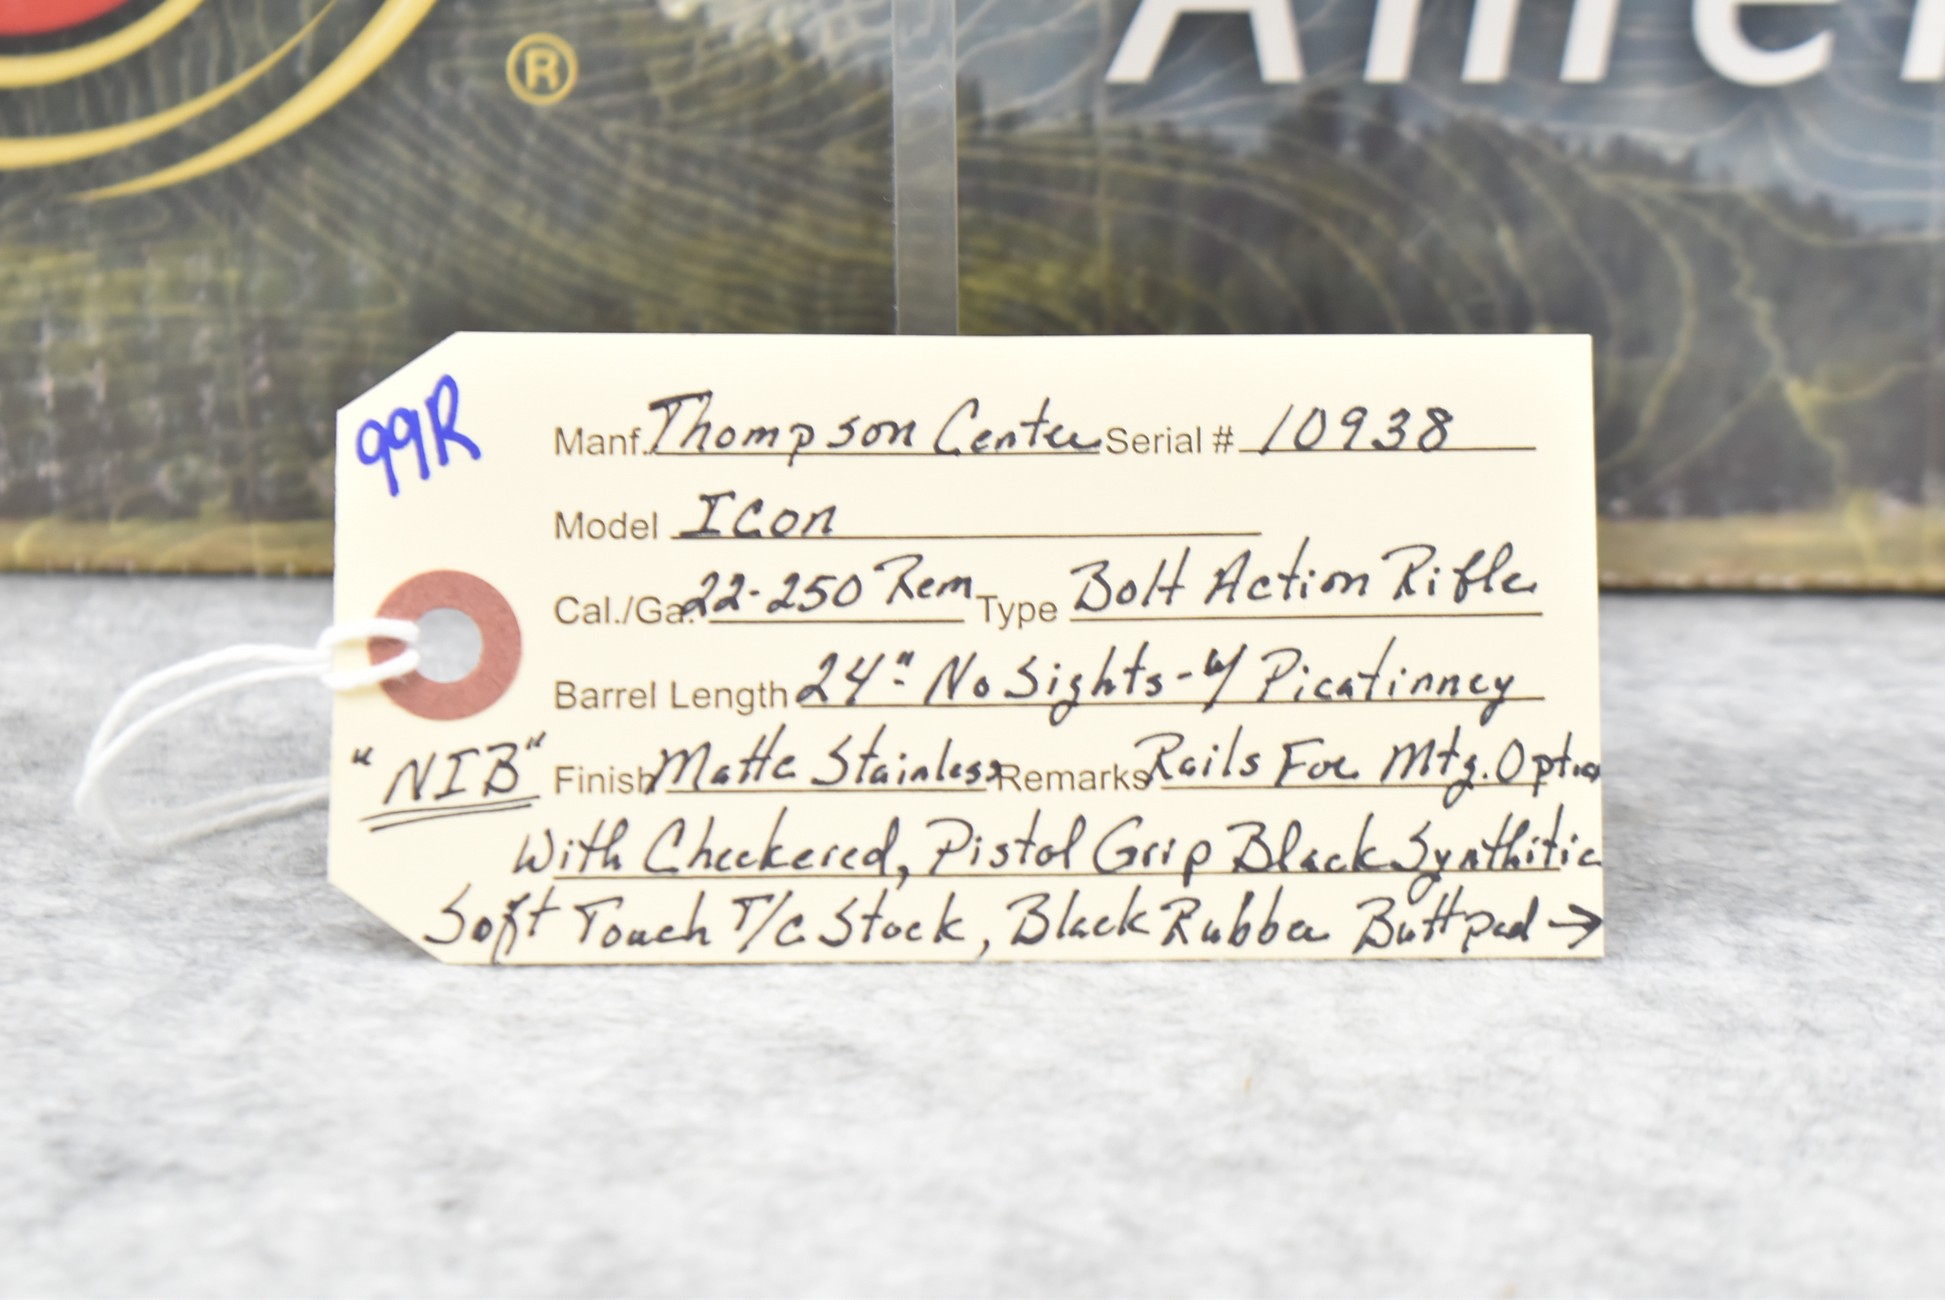 ®
Amer
99R
Manf. Thompson Center Serial # 10938
Model Icon
Cal./Ga. 22-250 Rem Type Bolt Action Rifle
Barrel Length 24" No Sights - w/ Picatinney
"NIB" Finish Matte Stainless Remarks Rails For Mtg. Optics
With Checkered, Pistol Grip Black Synthitic
Soft Touch T/C Stock, Black Rubber Buttpad →